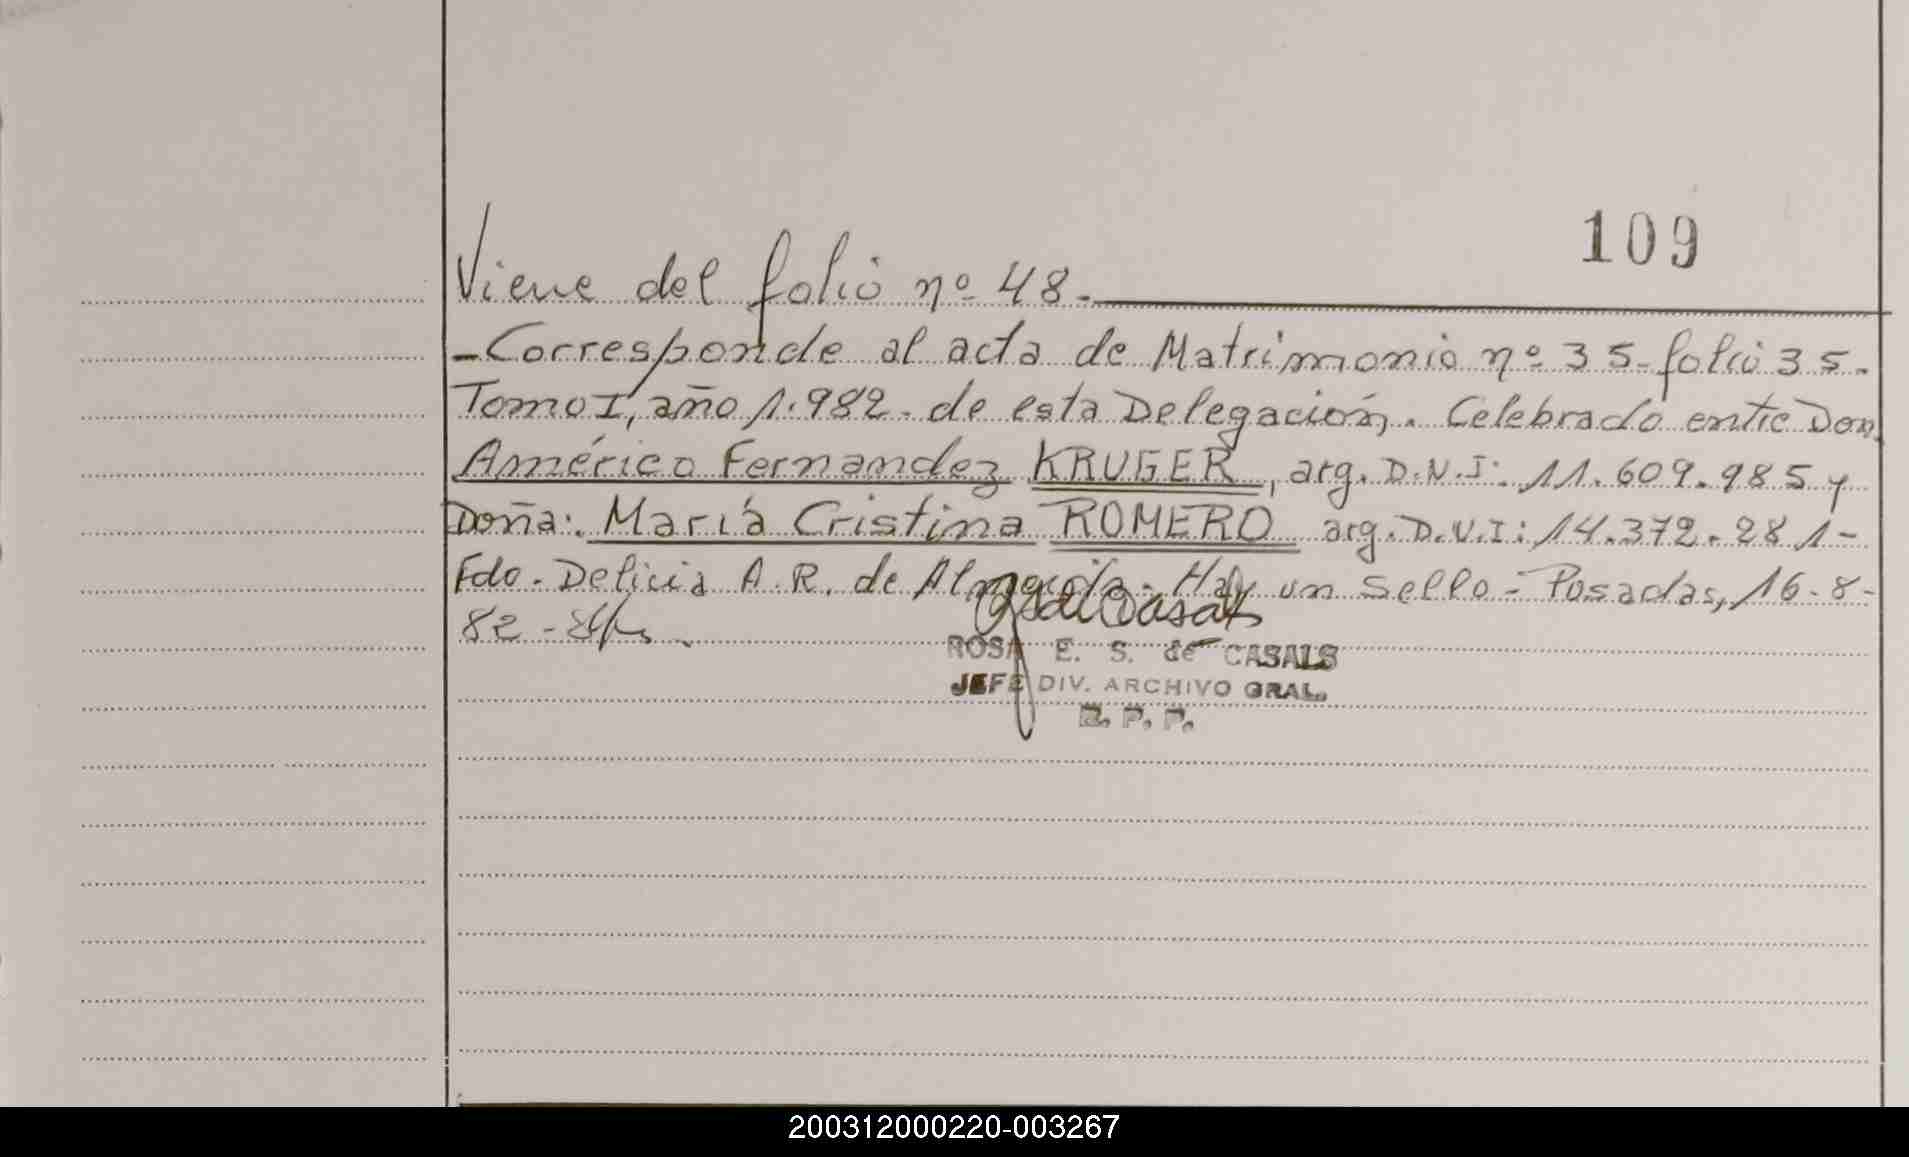 109
Viene del folio nº 48.-
-Corresponde al acta de Matrimonio nº 35-folio 35-
Tomo I, año 1.982- de esta Delegación,. Celebrado entre Don
Américo Fernandez KRUGER, arg. D.N.I: 11.609.985 y
Doña: María Cristina ROMERO arg. D.N.I: 14.372.281-
Fdo. Delicia A. R. de Almeida- Hay un sello - Posadas, 16-8-
82-
ROSA E. S. de CASALS
JEFE DIV. ARCHIVO GRAL.
R. P. P.
200312000220-003267